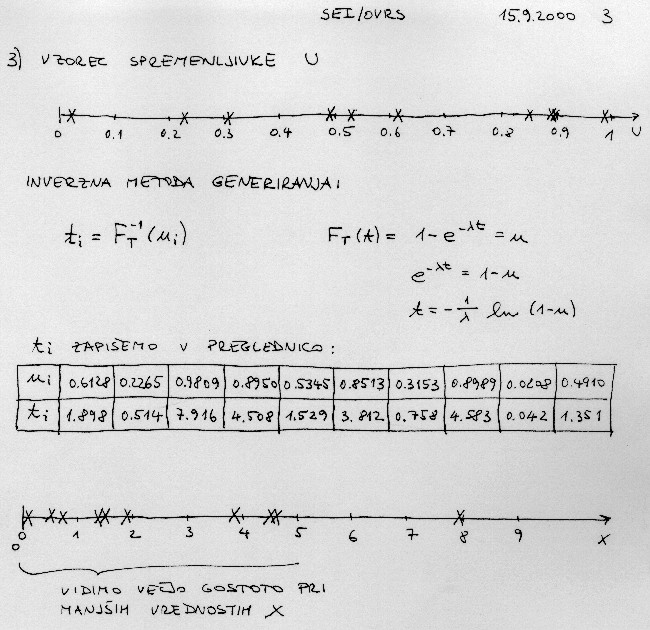 SEI/OVRS 15.9.2000 3
3) VZOREC SPREMENLJIVKE U
0 0.1 0.2 0.3 0.4 0.5 0.6 0.7 0.8 0.9 1 U
INVERZNA METODA GENERIRANJA:
t_i = F_T^{-1}(u_i) F_T(t) = 1-e^{-λt} = u
e^{-λt} = 1-u
t = -1/λ ln (1-u)
t_i ZAPIŠEMO V PREGLEDNICO:
u_i 0.6128 0.2265 0.9809 0.8950 0.5345 0.8513 0.3153 0.8989 0.0208 0.4910
t_i 1.898 0.514 7.916 4.508 1.529 3.812 0.758 4.583 0.042 1.351
0 1 2 3 4 5 6 7 8 9 X
0
VIDIMO VEČJO GOSTOTO PRI
MANJŠIH VREDNOSTIH X